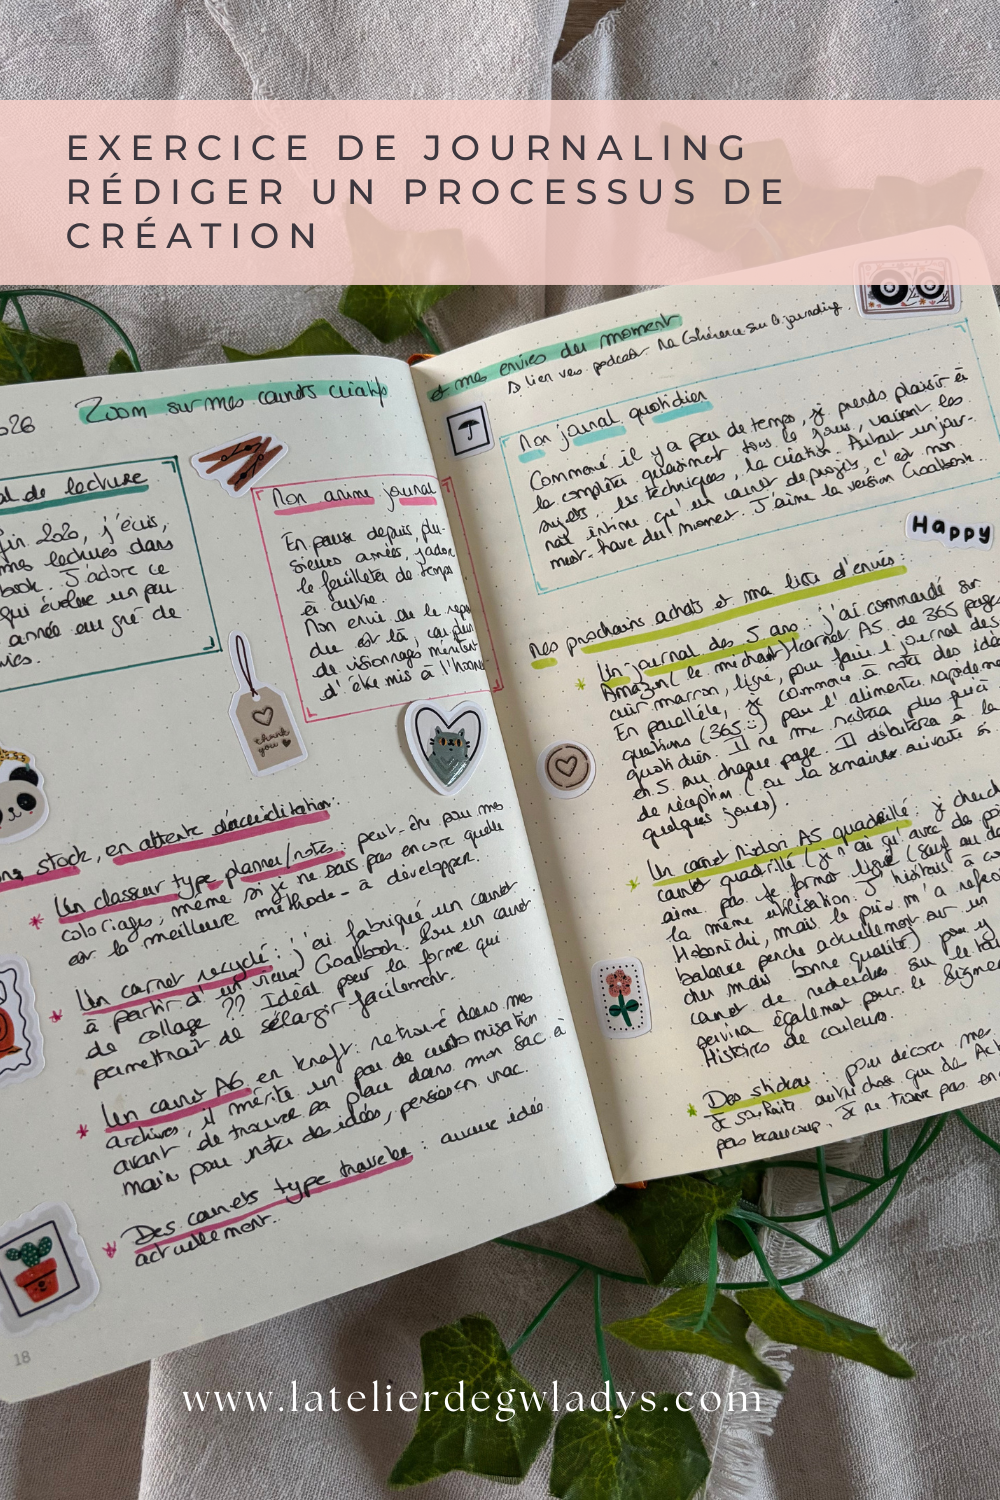 EXERCICE DE JOURNALING
RÉDIGER UN PROCESSUS DE
CRÉATION
Zoom sur mes carnets créatifs
al de lecture
fin 2020, j'écris,
mes lectures dans
book. J'adore ce
qui évolue un peu
année au gré de
vies.
Mon anime journal
En pause depuis plu-
sieurs années, j'adore
le feuilleter de temps
à autre.
Mon envie de le repren
dre est là, car plein
de visionnages méritent
d'être mis à l'honneur
thank
you
en stock, en attente d'accréditation :
* Un classeur type planner/notes : peut-être pour mes
coloriages, même si je ne sais pas encore quelle
est la meilleure méthode - à développer.
* Un carnet recyclé : j'ai fabriqué un carnet
à partir d'un vieux Goalbook. Pour un carnet
de collage ?? Idéal pour la forme qui
permettrait de s'élargir facilement.
* Un carnet A6 en kraft : retrouvé dans mes
archives, il mérite un peu de customisation
avant de trouver sa place dans mon sac à
main pour noter des idées, pensées en vrac.
* Des carnets type traveler : aucune idée
actuellement.
18
et mes envies du moment
lien vers podcast Ma Cohérence sur le journaling.
Mon journal quotidien
Commencé il y a peu de temps, je prends plaisir à
le compléter quasiment tous les jours, variant les
sujets, les techniques, la création. Autant un jour-
nal intime qu'un carnet de projets, c'est mon
must-have du moment. J'aime la version Goalbook.
Happy
Mes prochains achats et ma liste d'envies :
* Un journal des 5 ans : j'ai commandé sur
Amazon (le méchant) 1 carnet A5 de 365 pages
cuir marron, ligné, pour faire 1 journal des
En parallèle, je commence à noter des idées
questions (365 :) pour l'alimenter rapidement
quotidien. Il ne me restera plus qu'à
en 5 au chaque page. Il débutera à la
de réception (ou la semaine suivante si
quelques jours).
* Un carnet Midori A5 quadrillé : je cherche
carnet quadrillé (je n'ai qu'avec des po
aime pas le format ligné (sauf au de
la même utilisation. J'hésitais à co
Hobonichi, mais le prix m'a refroi
balance penche actuellement sur un
cher mais bonne qualité) pour y
carnet de recherches sur le
servira également pour le
Histoires de couleurs.
* Des stickers : pour décorer mes
Je souhaite autre chose que de Act
pas beaucoup. Je ne trouve pas en
www.latelierdegwladys.com